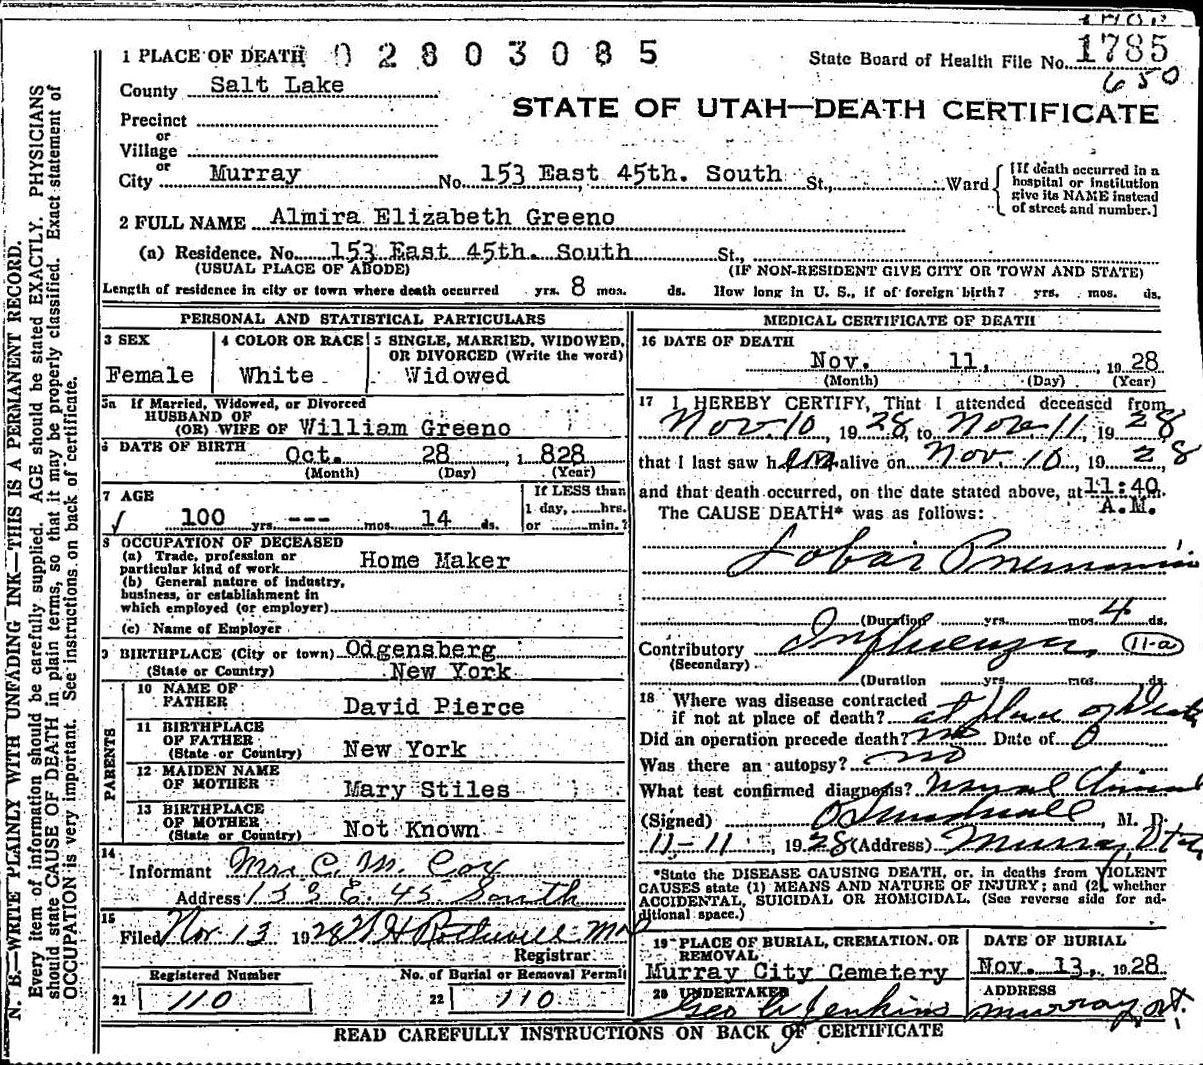 1 PLACE OF DEATH 02803085
State Board of Health File No. 1785
650
County Salt Lake
STATE OF UTAH—DEATH CERTIFICATE
Precinct
or
Village
or
City Murray No. 153 East 45th. South St., Ward
[If death occurred in a hospital or institution give its NAME instead of street and number.]
2 FULL NAME Almira Elizabeth Greeno
(a) Residence. No. 153 East 45th. South St.,
(USUAL PLACE OF ABODE) (IF NON-RESIDENT GIVE CITY OR TOWN AND STATE)
Length of residence in city or town where death occurred yrs. 8 mos. ds. How long in U. S., if of foreign birth? yrs. mos. ds.
PERSONAL AND STATISTICAL PARTICULARS
3 SEX
Female
4 COLOR OR RACE
White
5 SINGLE, MARRIED, WIDOWED,
OR DIVORCED (Write the word)
Widowed
5a If Married, Widowed, or Divorced
HUSBAND OF
(OR) WIFE OF William Greeno
6 DATE OF BIRTH Oct. 28 , 1 828
(Month) (Day) (Year)
7 AGE
100 yrs. --- mos. 14 ds.
If LESS than
1 day, ......hrs.
or ......min.?
8 OCCUPATION OF DECEASED
(a) Trade, profession or
particular kind of work Home Maker
(b) General nature of industry,
business, or establishment in
which employed (or employer)
(c) Name of Employer
9 BIRTHPLACE (City or town) Odgensberg
(State or Country) New York
PARENTS
10 NAME OF
FATHER David Pierce
11 BIRTHPLACE
OF FATHER
(State or Country) New York
12 MAIDEN NAME
OF MOTHER Mary Stiles
13 BIRTHPLACE
OF MOTHER
(State or Country) Not Known
14
Informant Mrs C. M. Cox
Address 153 E. 45 South
15
Filed Nov 13 1928 W H Rothwell MD
Registrar
Registered Number
21 110
No. of Burial or Removal Permit
22 110
MEDICAL CERTIFICATE OF DEATH
16 DATE OF DEATH
Nov. 11, , 19 28
(Month) (Day) (Year)
17 I HEREBY CERTIFY, That I attended deceased from
Nov. 10, 1928, to Nov. 11, 1928
that I last saw her alive on Nov. 10, 1928,
and that death occurred, on the date stated above, at 11:40 m.
A.M.
The CAUSE DEATH* was as follows:
Lobar Pneumonia
(Duration yrs. mos. 4 ds.
Contributory Influenza 11-a
(Secondary)
(Duration yrs. mos. ds.
18 Where was disease contracted
if not at place of death? at place of Death
Did an operation precede death? no Date of 0
Was there an autopsy? no
What test confirmed diagnosis?
(Signed) , M. D.
11-11, 1928 (Address) Murray, Utah
*State the DISEASE CAUSING DEATH, or, in deaths from VIOLENT
CAUSES state (1) MEANS AND NATURE OF INJURY; and (2) whether
ACCIDENTAL, SUICIDAL OR HOMICIDAL. (See reverse side for ad-
ditional space.)
19 PLACE OF BURIAL, CREMATION. OR
REMOVAL
Murray City Cemetery
DATE OF BURIAL
Nov. 13, 1928
20 UNDERTAKER
Geo A Jenkins
ADDRESS
Murray, Ut.
READ CAREFULLY INSTRUCTIONS ON BACK OF CERTIFICATE
N. B.—WRITE PLAINLY WITH UNFADING INK—THIS IS A PERMANENT RECORD.
Every item of information should be carefully supplied. AGE should be stated EXACTLY. PHYSICIANS
should state CAUSE OF DEATH in plain terms, so that it may be properly classified. Exact statement of
OCCUPATION is very important. See instructions on back of certificate.